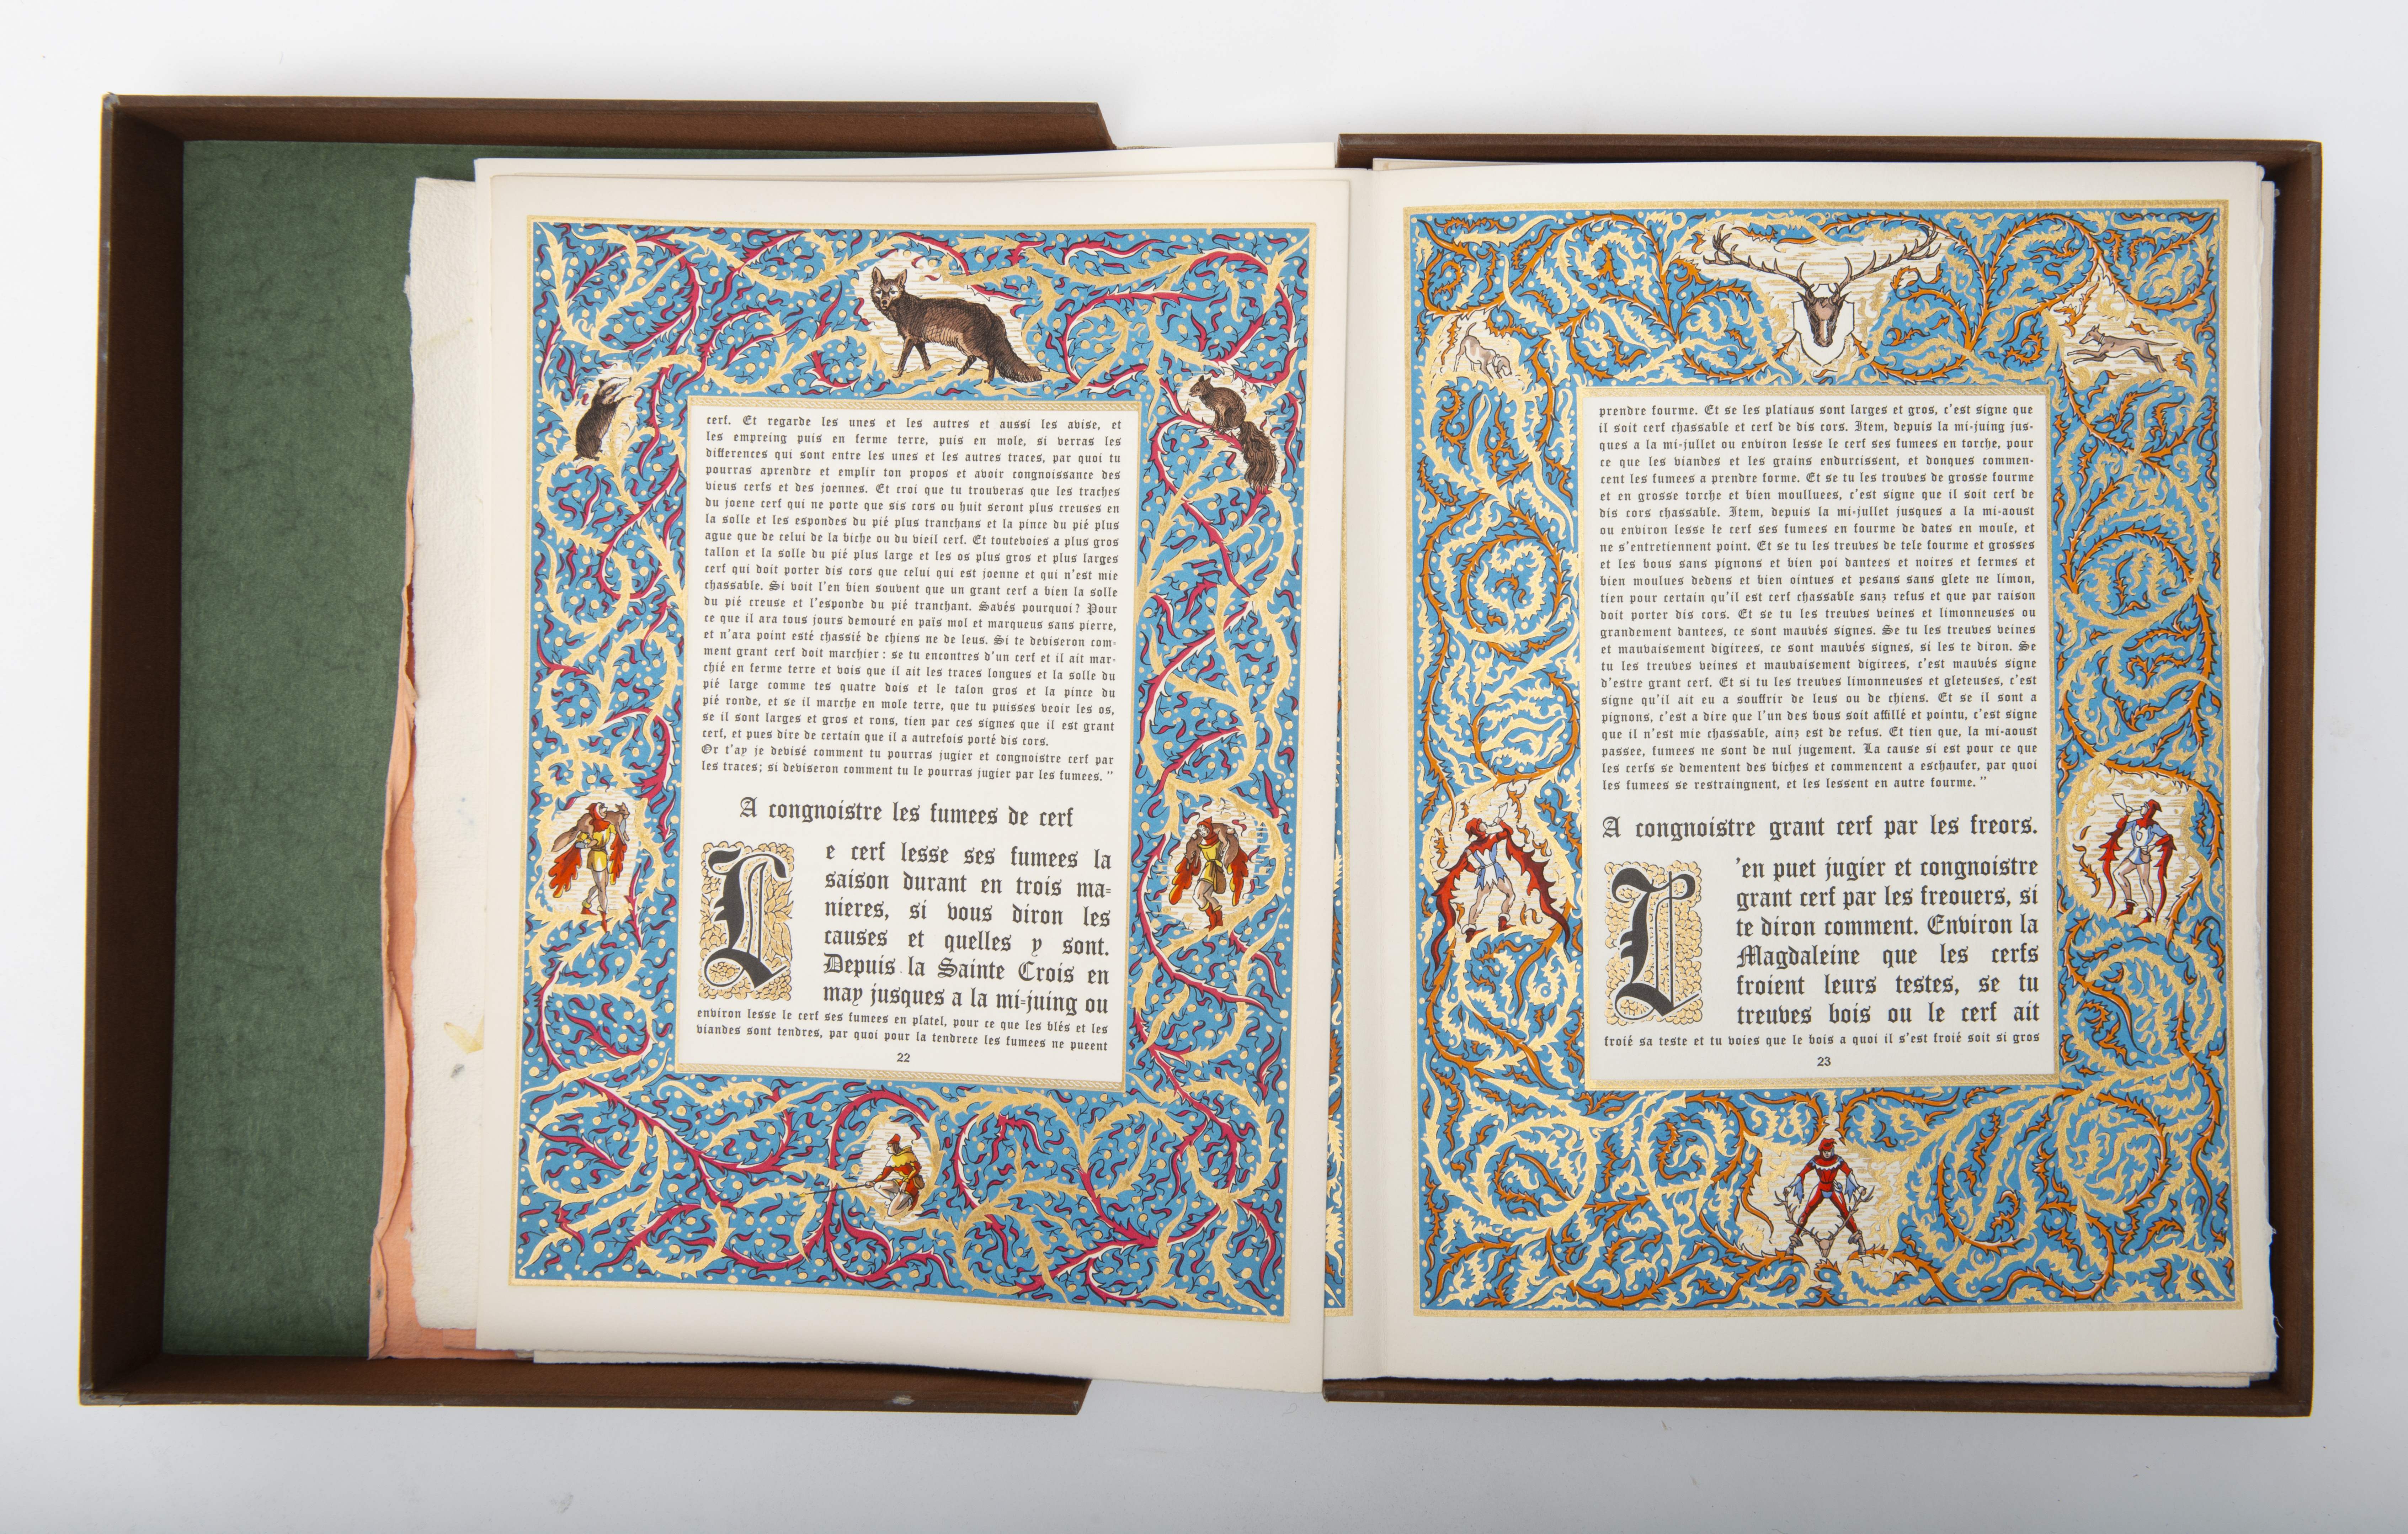 cerf. Et regarde les unes et les autres et aussi les avise, et
les empreing puis en ferme terre, puis en mole, si verras les
differences qui sont entre les unes et les autres traces, par quoi tu
pourras aprendre et emplir ton propos et avoir congnoissance des
vieus cerfs et des joennes. Et croi que tu trouveras que les traches
du joene cerf qui ne porte que sis cors ou huit seront plus creuses en
la solle et les espondes du pié plus tranchans et la pince du pié plus
ague que de celui de la biche ou du vieil cerf. Et toutevoies a plus gros
tallon et la solle du pié plus large et les os plus gros et plus larges
cerf qui doit porter dis cors que celui qui est joenne et qui n'est mie
chassable. Si voit l'en bien souvent que un grant cerf a bien la solle
du pié creuse et l'esponde du pié tranchant. Savés pourquoi? Pour
ce que il ara tous jours demouré en païs mol et marqueus sans pierre,
et n'ara point esté chassié de chiens ne de leus. Si te deviseron com-
ment grant cerf doit marchier : se tu encontres d'un cerf et il ait mar-
chié en ferme terre et vois que il ait les traces longues et la solle du
pié large comme tes quatre dois et le talon gros et la pince du
pié ronde, et se il marche en mole terre, que tu puisses veoir les os,
se il sont larges et gros et rons, tien par ces signes que il est grant
cerf, et pues dire de certain que il a autrefois porté dis cors.
Or t'ay je devisé comment tu pourras jugier et congnoistre cerf par
les traces; si deviseron comment tu le pourras jugier par les fumees. "
A congnoistre les fumees de cerf
Le cerf lesse ses fumees la
saison durant en trois ma=
nieres, si vous diron les
causes et quelles y sont.
Depuis la Sainte Crois en
may jusques a la mi=juing ou
environ lesse le cerf ses fumees en platel, pour ce que les blés et les
viandes sont tendres, par quoi pour la tendrece les fumees ne pueent
22
prendre fourme. Et se les platiaus sont larges et gros, c'est signe que
il soit cerf chassable et cerf de dis cors. Item, depuis la mi-juing jus-
ques a la mi-jullet ou environ lesse le cerf ses fumees en torche, pour
ce que les viandes et les grains endurcissent, et donques commen-
cent les fumees a prendre forme. Et se tu les trouves de grosse fourme
et en grosse torche et bien moulluees, c'est signe que il soit cerf de
dis cors chassable. Item, depuis la mi-jullet jusques a la mi-aoust
ou environ lesse le cerf ses fumees en fourme de dates en moule, et
ne s'entretiennent point. Et se tu les treuves de tele fourme et grosses
et les bous sans pignons et bien poi dantees et noires et fermes et
bien moulues dedens et bien ointues et pesans sans glete ne limon,
tien pour certain qu'il est cerf chassable sanz refus et que par raison
doit porter dis cors. Et se tu les treuves veines et limonneuses ou
grandement dantees, ce sont mauvés signes. Se tu les treuves veines
et mauvaisement digirees, ce sont mauvés signes, si les te diron. Se
tu les treuves veines et mauvaisement digirees, c'est mauvés signe
d'estre grant cerf. Et si tu les treuves limonneuses et gleteuses, c'est
signe qu'il ait eu a souffrir de leus ou de chiens. Et se il sont a
pignons, c'est a dire que l'un des bous soit affillé et pointu, c'est signe
que il n'est mie chassable, ainz est de refus. Et tien que, la mi-aoust
passee, fumees ne sont de nul jugement. La cause si est pour ce que
les cerfs se dementent des biches et commencent a eschaufer, par quoi
les fumees se restraingnent, et les lessent en autre fourme. "
A congnoistre grant cerf par les freors.
L'en puet jugier et congnoistre
grant cerf par les freouers, si
te diron comment. Environ la
Magdaleine que les cerfs
froient leurs testes, se tu
treuves bois ou le cerf ait
froié sa teste et tu voies que le bois a quoi il s'est froié soit si gros
23